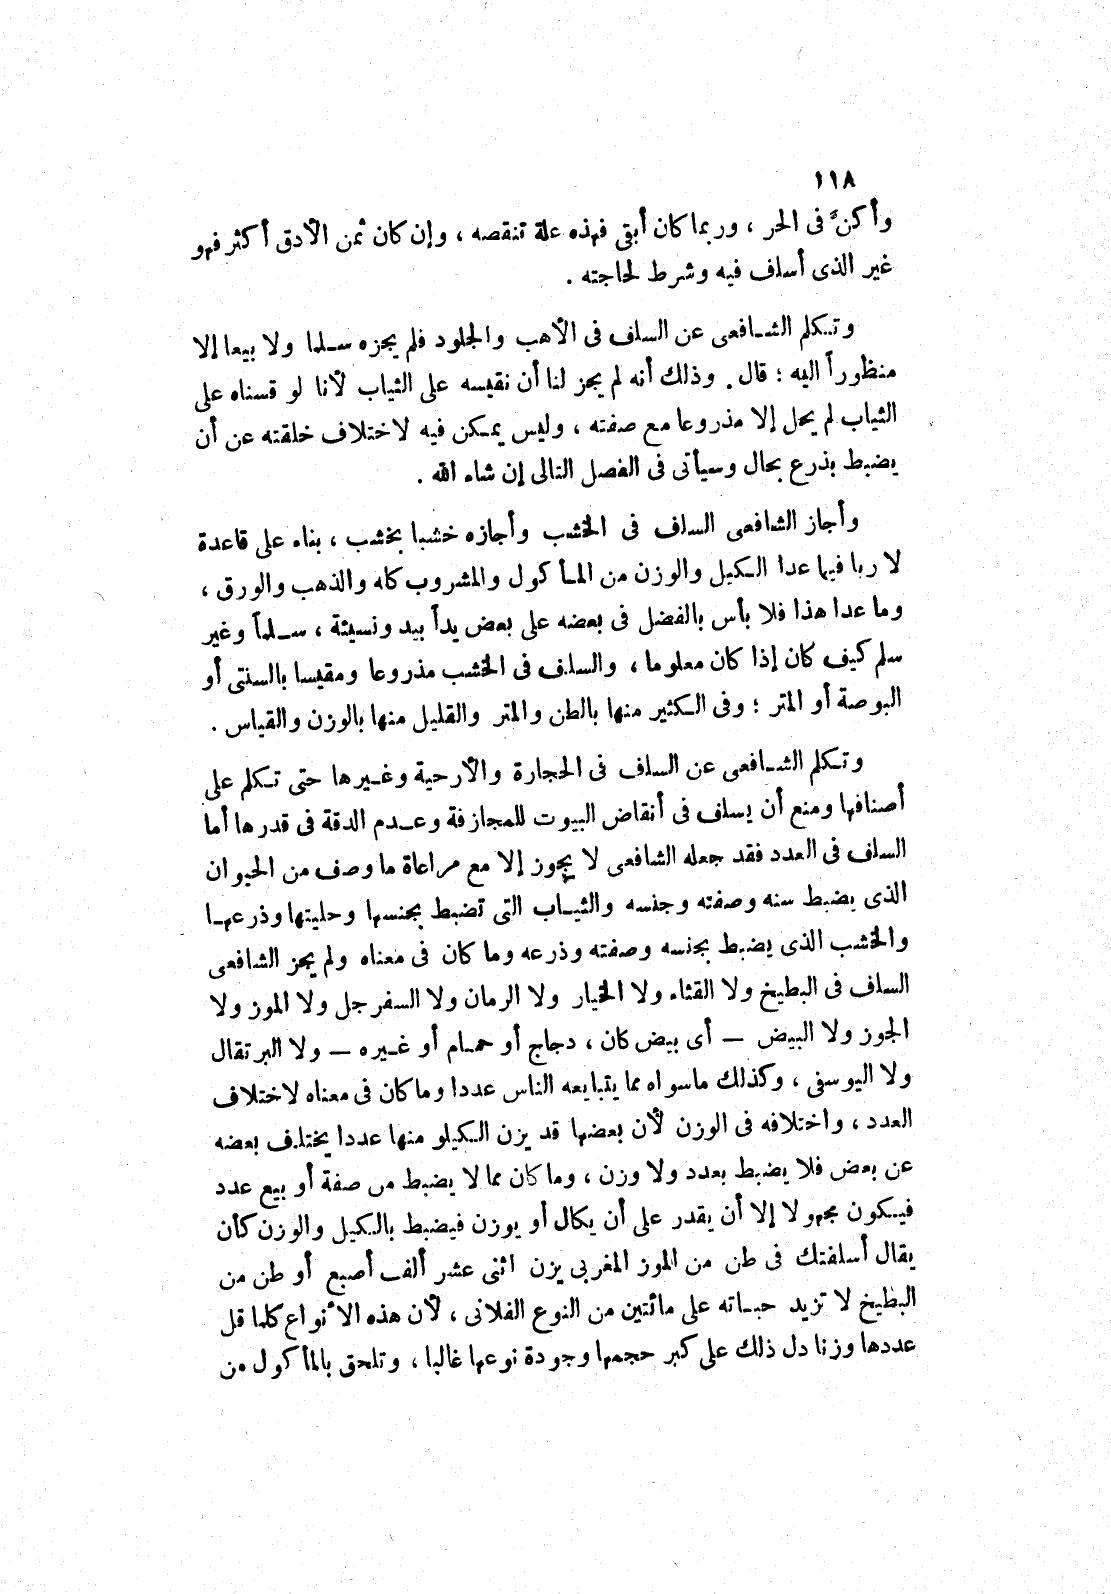 ١١٨
وأكنّ فى الحر ، وربما كان أبقى فهذه علة تنقصه ، وإن كان ثمن الأدق أكثر فهو
غير الذى أسلف فيه وشرط لحاجته .
وتكلم الشافعى عن السلف فى الأهب والجلود فلم يجزه سلما ولا بيعا إلا
منظوراً اليه ؛ قال . وذلك أنه لم يجز لنا أن نقيسه على الثياب لأنا لو قسناه على
الثياب لم يحل إلا مذروعا مع صفته ، وليس يمكن فيه لاختلاف خلقته عن أن
يضبط بذرع بحال وسيأتى فى الفصل التالى إن شاء الله .
وأجاز الشافعى السلف فى الخشب وأجازه خشبا بخشب ، بناء على قاعدة
لا ربا فيها عدا الكيل والوزن من المأكول والمشروب كله والذهب والورق ،
وما عدا هذا فلا بأس بالفضل فى بعضه على بعض يداً بيد ونسيئة ، سلماً وغير
سلم كيف كان إذا كان معلوما ، والسلف فى الخشب مذروعا ومقيسا بالسنتى أو
البوصة أو المتر ؛ وفى الكثير منها بالطن والمتر والقليل منها بالوزن والقياس .
وتكلم الشافعى عن السلف فى الحجارة والأرحية وغيرها حتى تكلم على
أصنافها ومنع أن يسلف فى أنقاض البيوت للمجازفة وعدم الدقة فى قدرها أما
السلف فى العدد فقد جعله الشافعى لا يجوز إلا مع مراعاة ما وصف من الحيوان
الذى يضبط سنه وصفته وجنسه والثياب التى تضبط بجنسها وحليتها وذرعها
والخشب الذى يضبط بجنسه وصفته وذرعه وما كان فى معناه ولم يجز الشافعى
السلف فى البطيخ ولا القثاء ولا الخيار ولا الرمان ولا السفرجل ولا الموز ولا
الجوز ولا البيض — أى بيض كان ، دجاج أو حمام أو غيره — ولا البرتقال
ولا اليوسفى ، وكذلك ماسواه مما يتبايعه الناس عددا وما كان فى معناه لاختلاف
العدد ، واختلافه فى الوزن لأن بعضها قد يزن الكيلو منها عددا يختلف بعضه
عن بعض فلا يضبط بعدد ولا وزن ، وما كان مما لا يضبط من صفة أو بيع عدد
فيكون مجهولا إلا أن يقدر على أن يكال أو يوزن فيضبط بالكيل والوزن كأن
يقال أسلفتك فى طن من الموز المغربى يزن اثنى عشر ألف أصبع أو طن من
البطيخ لا تزيد حباته على مائتين من النوع الفلانى ، لأن هذه الأنواع كلما قل
عددها وزنا دل ذلك على كبر حجمها وجودة نوعها غالبا ، وتلحق بالمأكول من